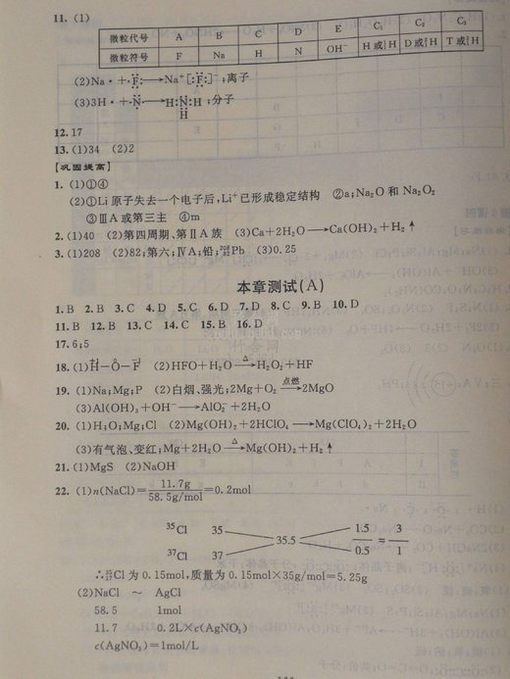 11. (1)
微粒代号 A B C D E C₁ C₂ C₃
微粒符号 F Na H N OH⁻ H或¹₁H D或²₁H T或³₁H
(2)Na·+·F̈:→Na⁺[:F̈:]⁻;离子
(3)3H·+·N̈·→H:N̈:H;分子
H
12. 17
13. (1)34 (2)2
【巩固提高】
1. (1)①④
(2)①Li原子失去一个电子后,Li⁺已形成稳定结构 ②a;Na₂O和Na₂O₂
③ⅢA或第三主 ④m
2. (1)40 (2)第四周期、第ⅡA族 (3)Ca+2H₂O→Ca(OH)₂+H₂↑
3. (1)208 (2)82;第六;ⅣA;铅;²⁰⁸₈₂Pb (3)0.25
本章测试(A)
1. B 2. B 3. C 4. D 5. C 6. D 7. D 8. C 9. B 10. D
11. B 12. B 13. C 14. C 15. B 16. D
17. 6;5
18. (1)H—O—F (2)HFO+H₂O —△→H₂O₂+HF
19. (1)Na;Mg;P (2)白烟、强光;2Mg+O₂ —点燃→2MgO
(3)Al(OH)₃+OH⁻→AlO₂⁻+2H₂O
20. (1)H;O;Mg;Cl (2)Mg(OH)₂+2HClO₄→Mg(ClO₄)₂+2H₂O
(3)有气泡、变红;Mg+2H₂O —△→Mg(OH)₂+H₂↑
21. (1)MgS (2)NaOH
22. (1)n(NaCl)=11.7g/58.5g/mol=0.2mol
³⁵Cl 35 1.5 3
35.5 =
³⁷Cl 37 0.5 1
∴³⁵₁₇Cl为0.15mol,质量为0.15mol×35g/mol=5.25g
(2)NaCl ~ AgCl
58.5 1mol
11.7 0.2L×c(AgNO₃)
c(AgNO₃)=1mol/L